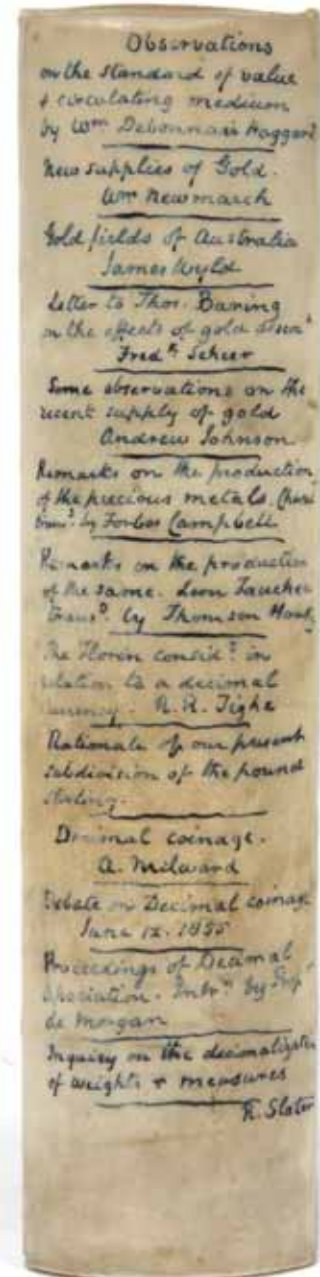 Observations
on the standard of value
& circulating medium
by Wm Debonnair Haggard
New supplies of Gold.
Wm Newmarch
Gold fields of Australia
James Wyld
Letter to Thos. Baring
on the effects of gold
Fredk Scheer
Some observations on the
recent supply of gold
Andrew Johnson
Remarks on the production
of the precious metals.
by Forbes Campbell
Remarks on the production
of the same. Leon Faucher
transd. by Thomson
The Florin considd in
relation to a decimal
currency. R. R. Tighe
Rationale of our present
subdivision of the pound
sterling.
Decimal coinage.
A. Milward
Debate on Decimal coinage
June 12. 1855
Proceedings of Decimal
Association. Intrn by Prof
de Morgan
Inquiry on the decimalization
of weights & measures
R. Slater